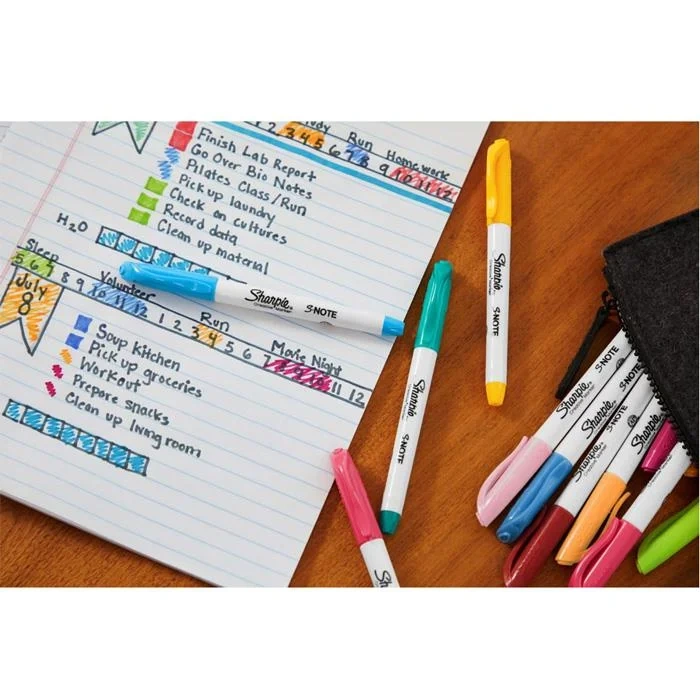 2 3 4 5 6 7 8 9 10 11 12
Study Run Homework
Finish Lab Report
Go Over Bio Notes
Pilates Class/Run
Pick up laundry
Check on cultures
Record data
Clean up material
H₂O
Sleep Volunteer Run Movie Night
5 6 7 8 9 10 11 12 1 2 3 4 5 6 7 8 9 10 11 12
July
8
Soup Kitchen
Pick up groceries
Workout
Prepare snacks
Clean up living room
Sharpie S·NOTE
Creative Marker
Sharpie S·NOTE
Creative Marker
Sharpie S·NOTE
Creative Marker
Sharpie S·NOTE
Creative Marker
Sharpie S·NOTE
Sharpie
Creative Marker
Sh